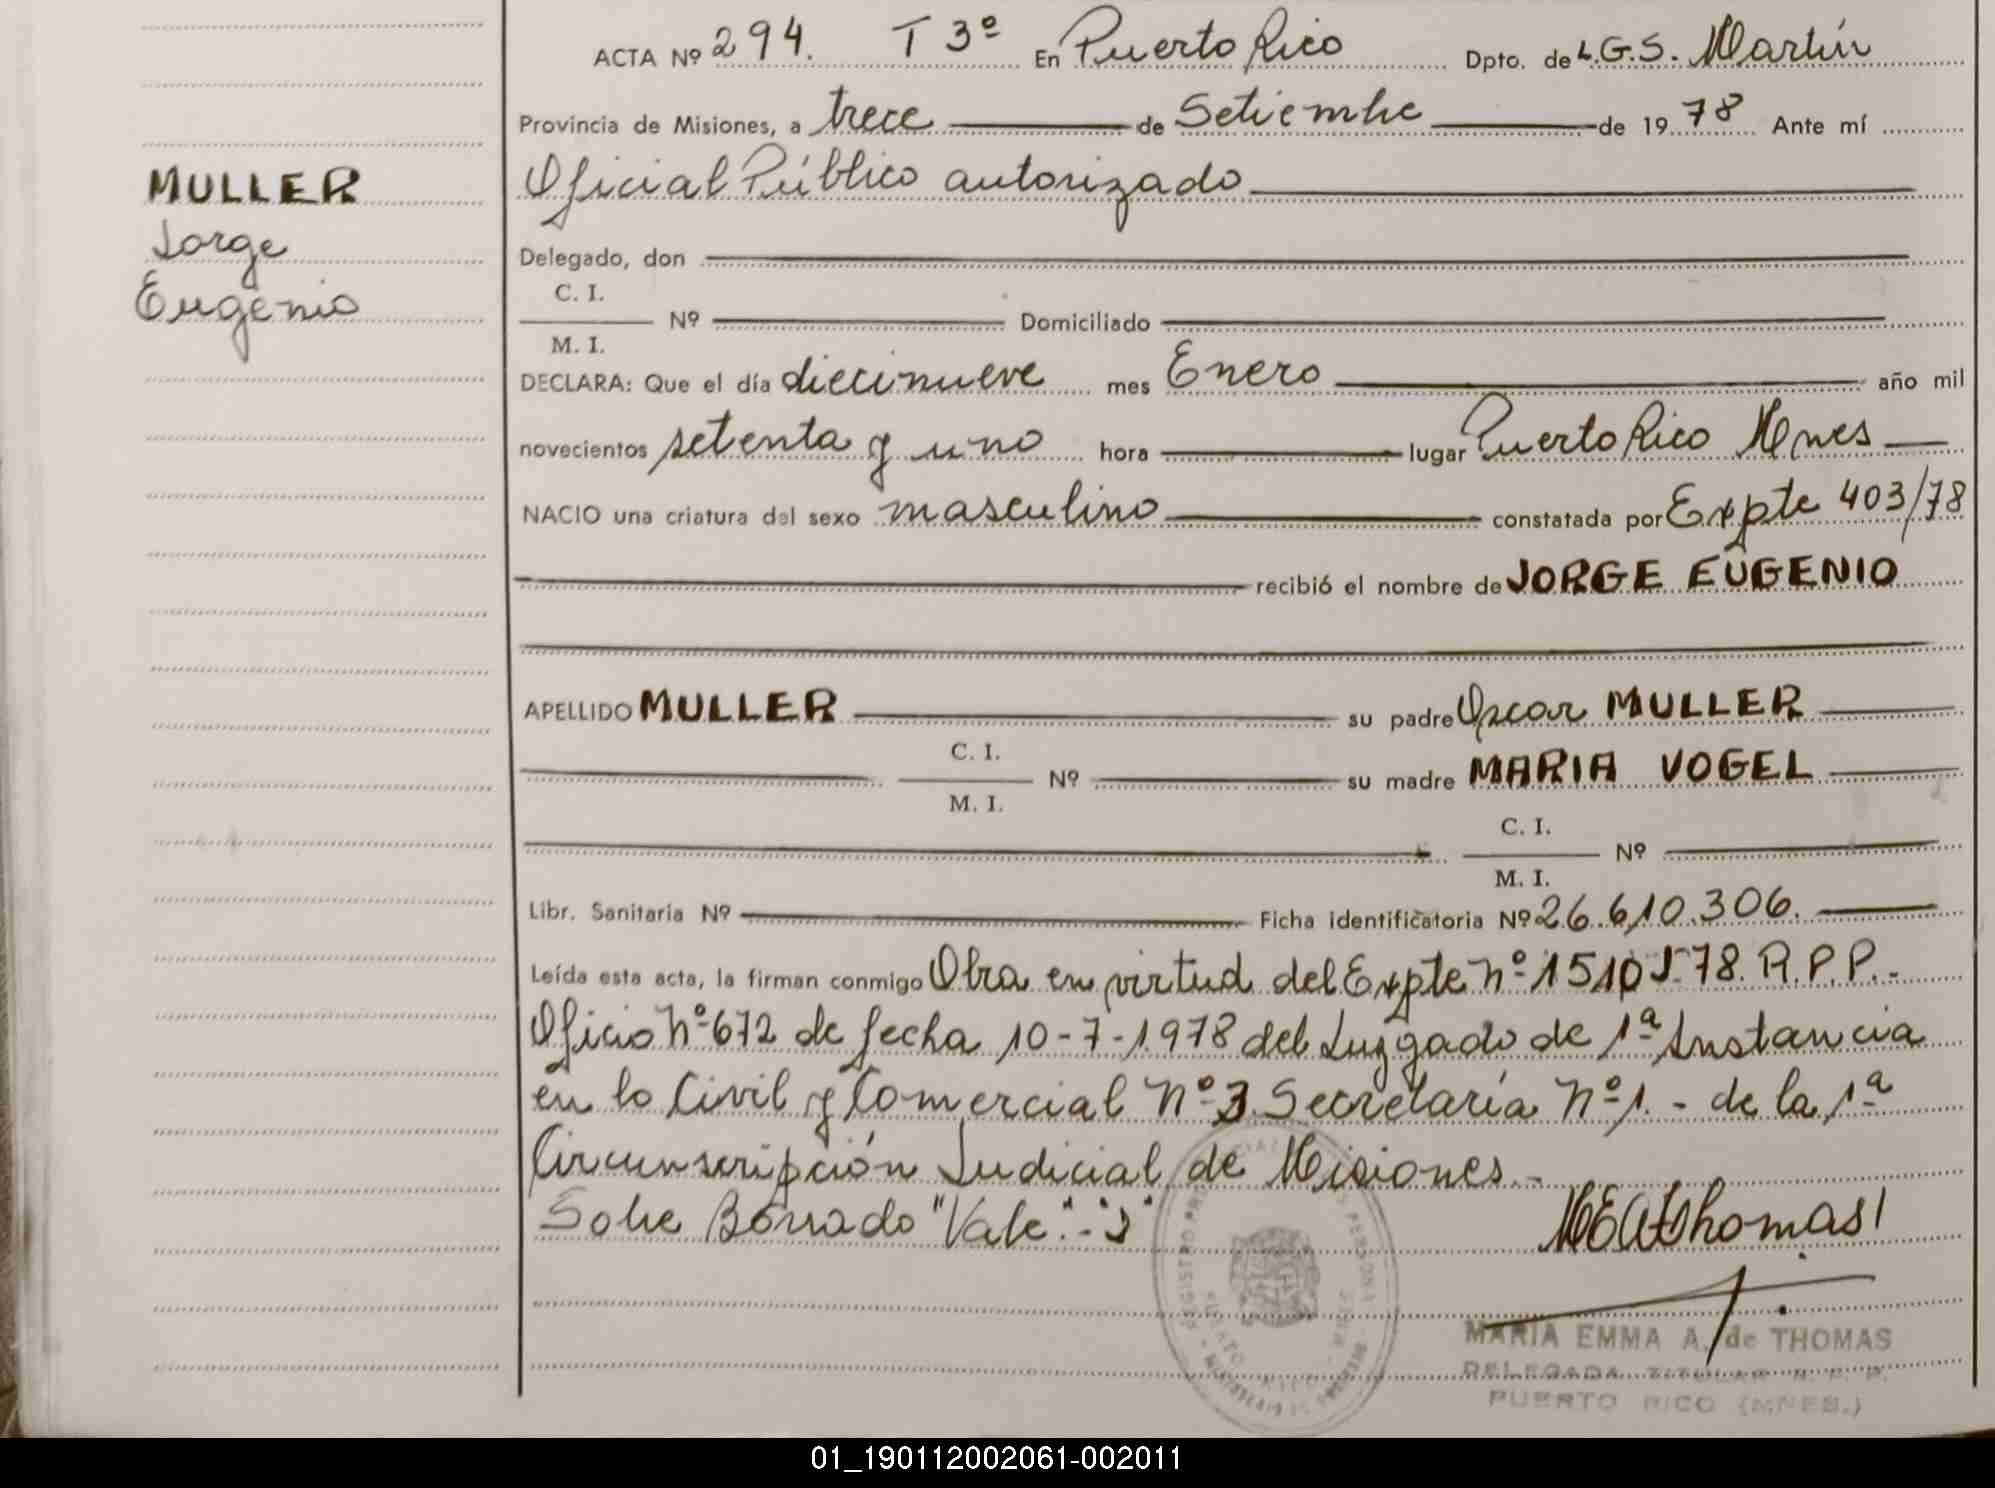 ACTA Nº 294. T 3º En Puerto Rico Dpto. de L.G.S. Martín
Provincia de Misiones, a trece de Setiembre de 1978 Ante mí
Oficial Público autorizado
MULLER
Jorge
Eugenio
Delegado, don
C. I.
Nº Domiciliado
M. I.
DECLARA: Que el día diecinueve mes Enero año mil
novecientos setenta y uno hora lugar Puerto Rico Mnes
NACIO una criatura del sexo masculino constatada por Expte 403/78
recibió el nombre de JORGE EUGENIO
APELLIDO MULLER su padre Oscar MULLER
C. I.
Nº su madre MARIA VOGEL
M. I.
C. I.
Nº
M. I.
Libr. Sanitaria Nº Ficha identificatoria Nº 26.610.306.
Leída esta acta, la firman conmigo Obra en virtud del Expte nº 1510 J-78. R.P.P.-
Oficio Nº 672 de fecha 10-7-1978 del Juzgado de 1ª Instancia
en lo Civil y Comercial Nº 3 Secretaría Nº 1.- de la 1ª
Circunscripción Judicial de Misiones.-
Sobre Borrado "Vale".-
MEAdeThomas
MARIA EMMA A. de THOMAS
DELEGADA TITULAR R. P. P.
PUERTO RICO (MNES.)
01_190112002061-002011